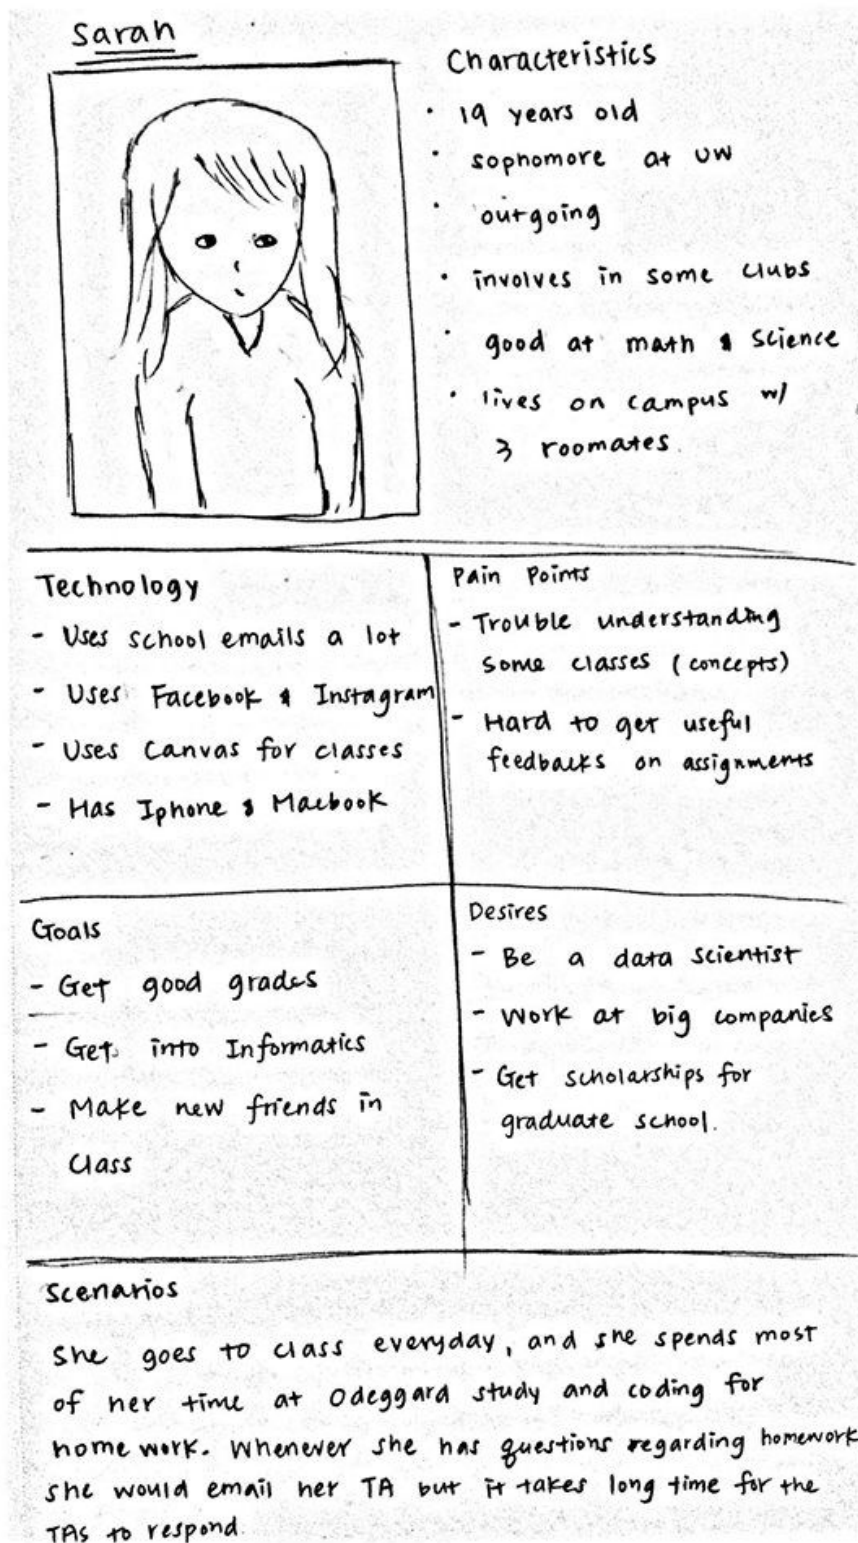 Sarah
Characteristics
· 19 years old
· sophomore at UW
· outgoing
· involves in some clubs
· good at math & science
· lives on campus w/
3 roomates.
Technology
- Uses school emails a lot
- Uses Facebook & Instagram
- Uses Canvas for classes
- Has Iphone & Macbook
Pain Points
- Trouble understanding
some classes (concepts)
- Hard to get useful
feedbacks on assignments
Goals
- Get good grades
- Get into Informatics
- Make new friends in
class
Desires
- Be a data scientist
- Work at big companies
- Get scholarships for
graduate school.
Scenarios
She goes to class everyday, and she spends most
of her time at Odeggard study and coding for
homework. Whenever she has questions regarding homework
she would email her TA but it takes long time for the
TAs to respond